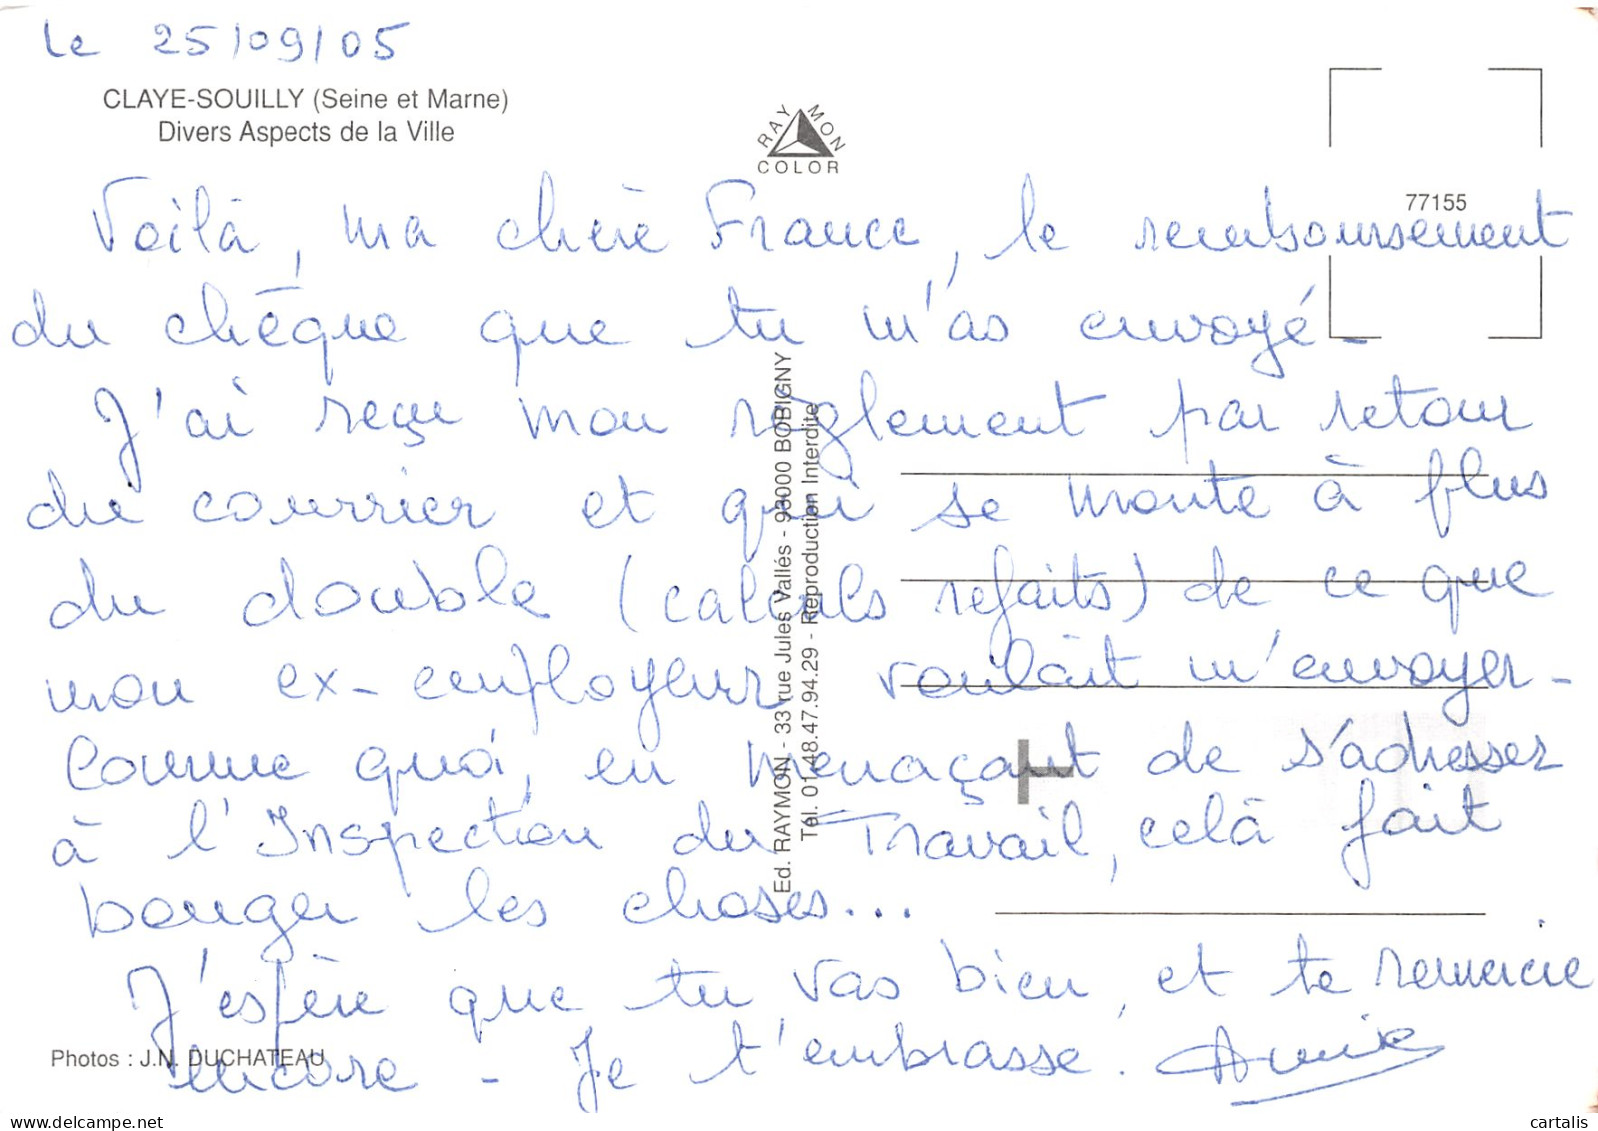 Le 25/09/05
CLAYE-SOUILLY (Seine et Marne)
Divers Aspects de la Ville
RAYMON
COLOR
77155
Voilà, ma chère France, le remboursement
du chèque que tu m'as envoyé -
J'ai reçu mon règlement par retour
du courrier et qui se monte à plus
du double (calculs refaits) de ce que
mon ex-employeur voulait m'envoyer -
Comme quoi, en menaçant de s'adresser
à l'Inspection du Travail, celà fait
bouger les choses...
J'espère que tu vas bien, et te remercie
encore - Je t'embrasse. Annie
Ed. RAYMON - 33 rue Jules Vallés - 93000 BOBIGNY
Tél. 01.48.47.94.29 - Reproduction Interdite
Photos : J.N. DUCHATEAU
cartalis